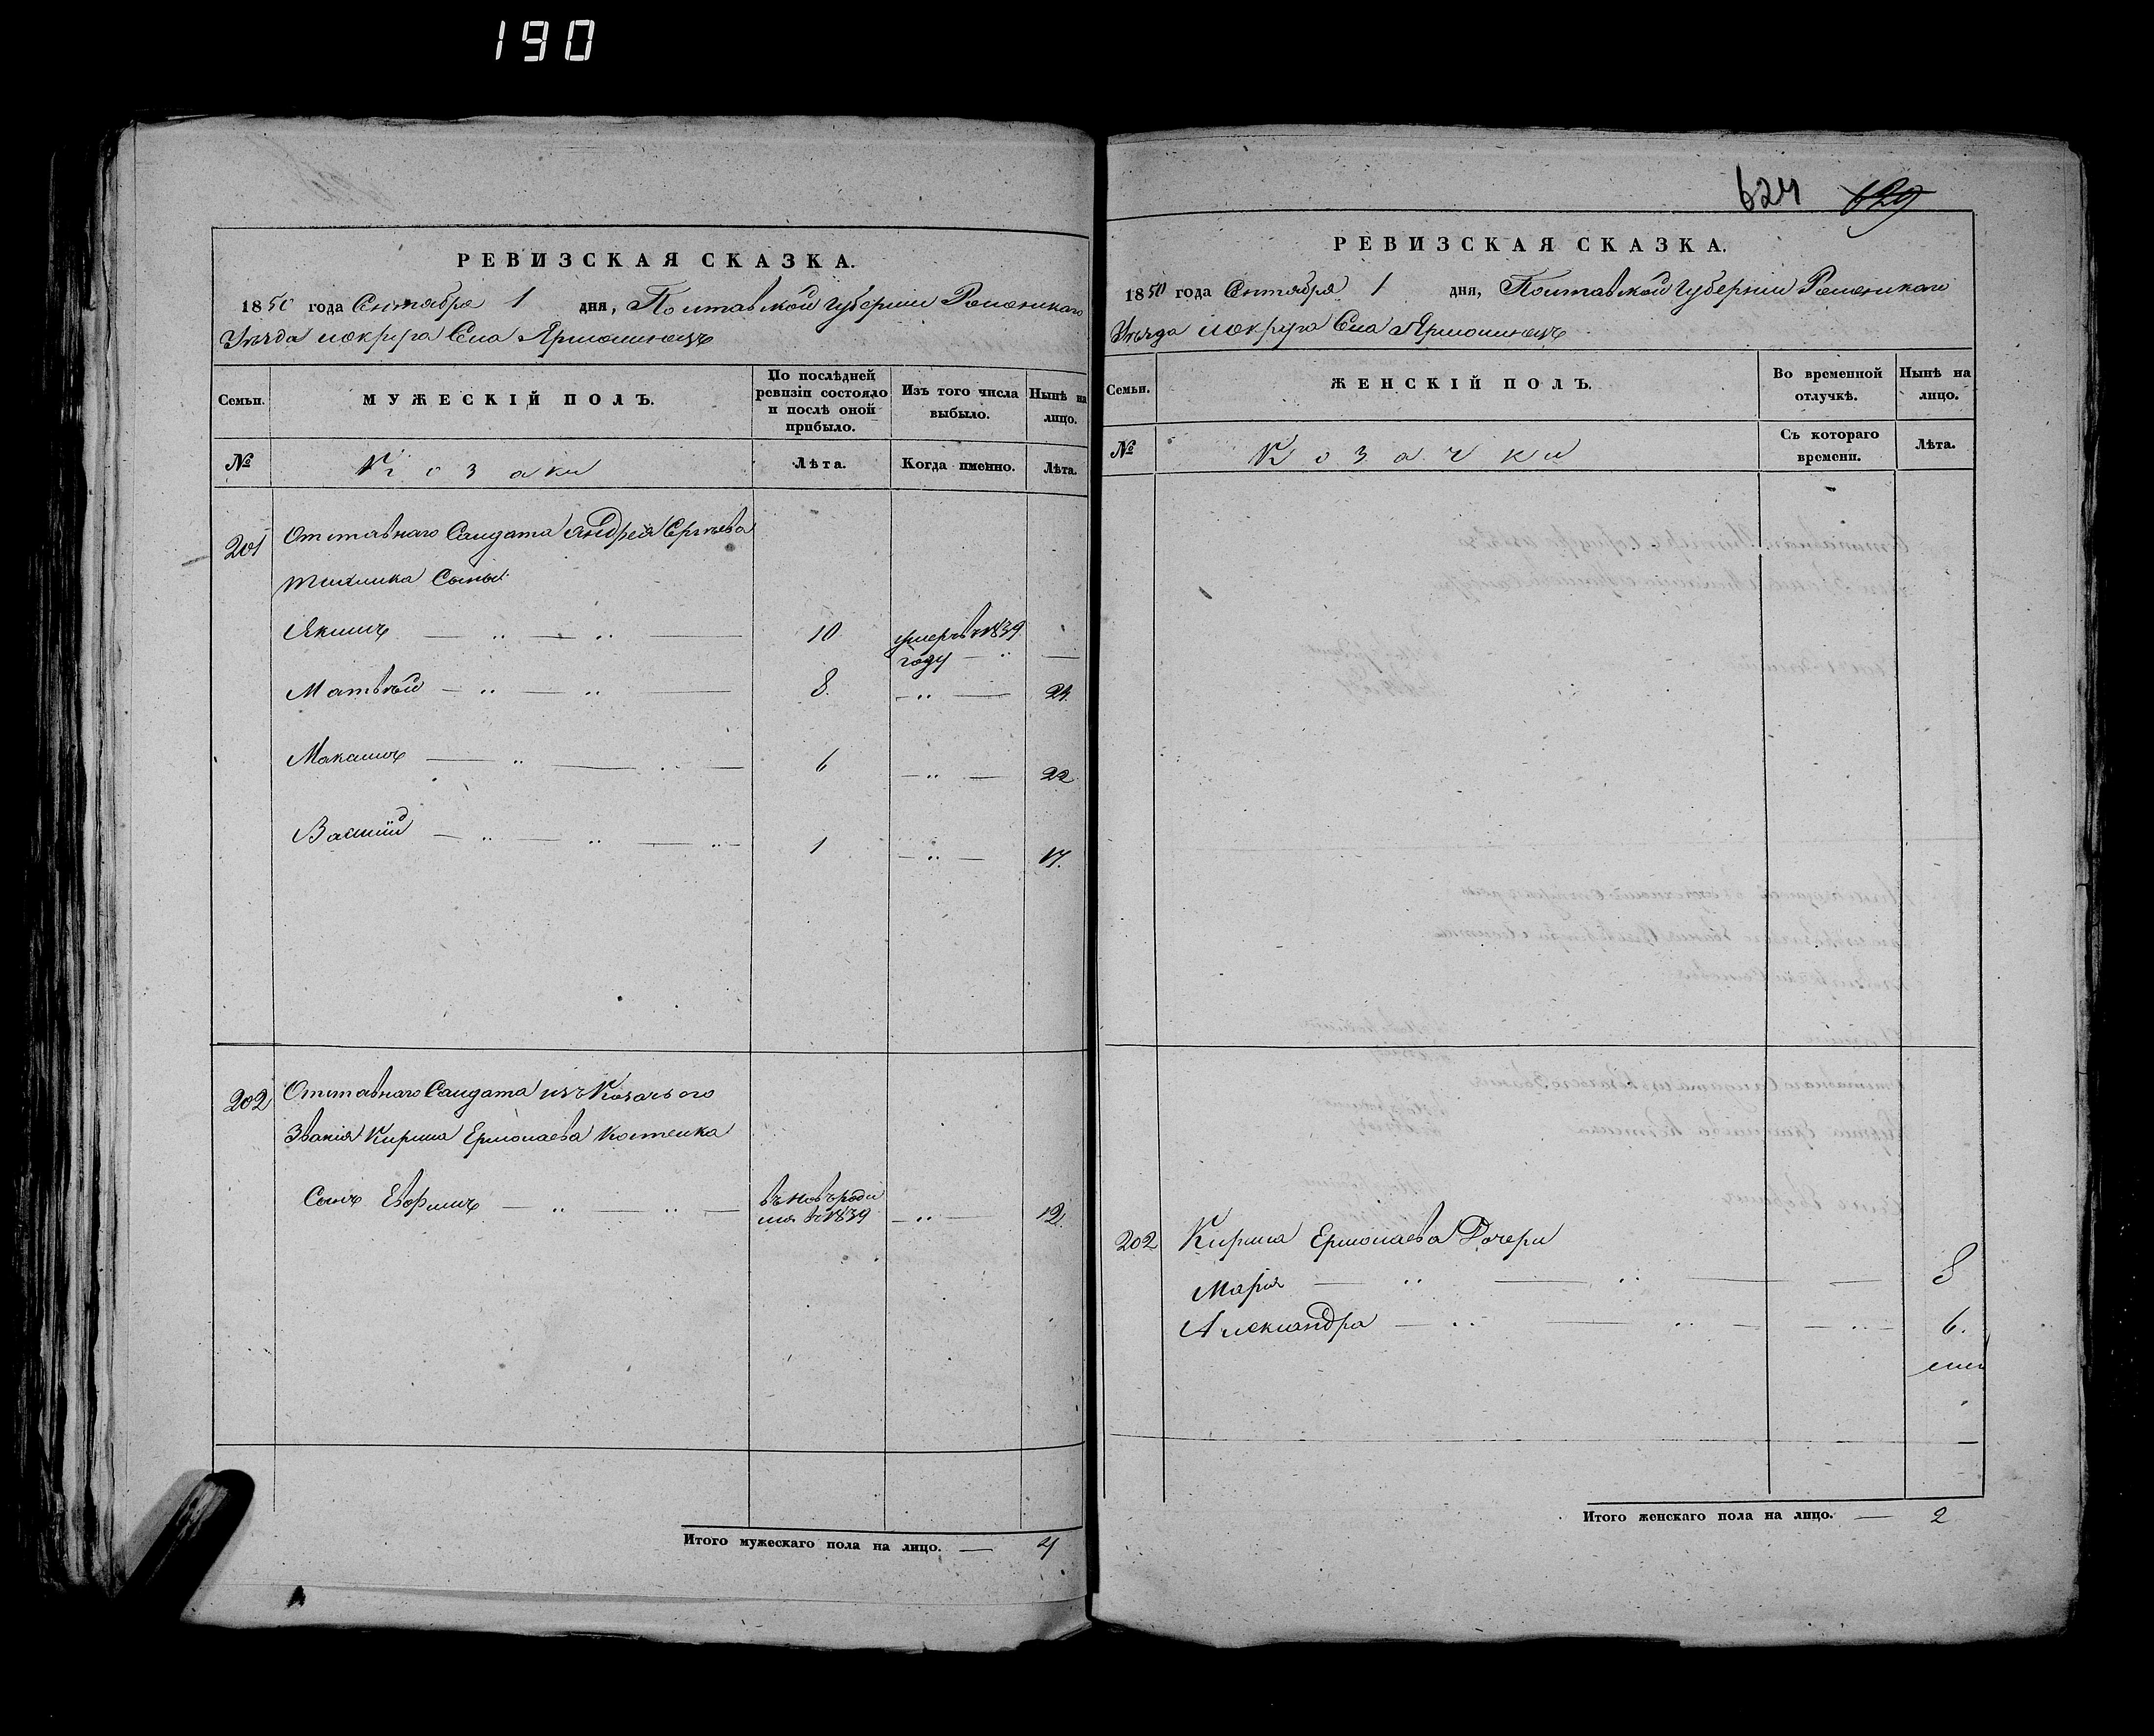 190
РЕВИЗСКАЯ СКАЗКА.
1850 года Сентября 1 дня, Полтавской Губернии Роменскаго
Уезда и округа Села Ярмолинецъ
Семьи.
МУЖЕСКІЙ ПОЛЪ.
По послѣдней ревизіи состояло и послѣ оной прибыло.
Изъ того числа выбыло.
Нынѣ на лицо.
№
Козаки
Лѣта.
Когда именно.
Лѣта.
201 Отставнаго Салдата Андрея Сергѣева
Сыны
Якимъ 10 умеръ в 1839
году
Матвѣй 8. 24.
Максимъ 6 22
Василій 1 17.
202 Отставнаго Салдата изъ Козачьего
Званія Кирила Ермолаева Костенка
Сынъ Евфимъ вновь роди
лся в 1839 12.
Итого мужескаго пола на лицо. — 4
624 629
РЕВИЗСКАЯ СКАЗКА.
1850 года Сентября 1 дня, Полтавской Губернии Роменскаго
Уезда и округа Села Ярмолинецъ
Семьи.
ЖЕНСКІЙ ПОЛЪ.
Во временной отлучкѣ.
Нынѣ на лицо.
№
Козачки
Съ котораго времени.
Лѣта.
202 Кирила Ермолаева Дочери
Марія 8
Александра 6.
Итого женскаго пола на лицо. — 2